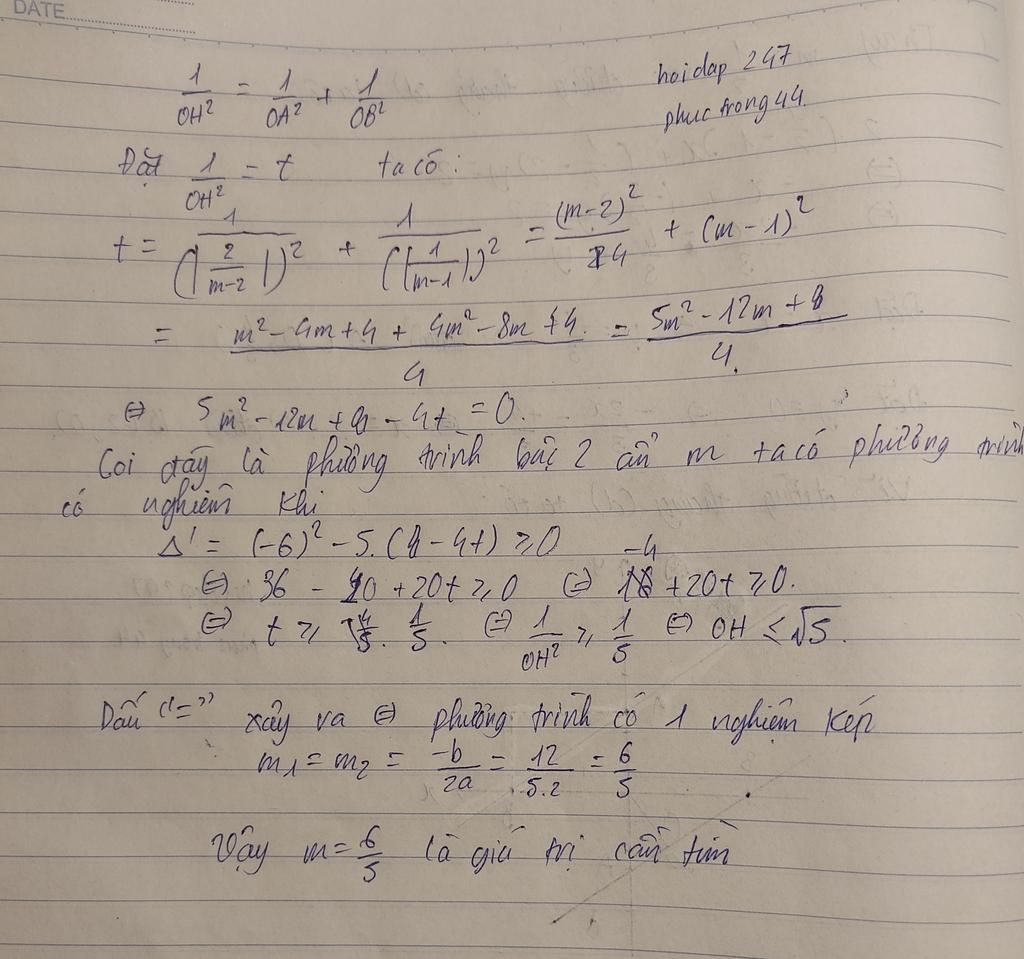 DATE
hoidap 247
phuctrong44
1/OH² = 1/OA² + 1/OB²
Đặt 1/OH² = t ta có:
t = 1/(|2/(m-2)|)² + 1/(|1/(m-1)|)² = (m-2)²/4 + (m-1)²
= (m² - 4m + 4 + 4m² - 8m + 4)/4 = (5m² - 12m + 8)/4.
⇔ 5m² - 12m + 8 - 4t = 0.
Coi đây là phường trình bậc 2 ẩn m ta có phường trình
có nghiệm khi
Δ' = (-6)² - 5.(8 - 4t) ≥ 0
⇔ 36 - 40 + 20t ≥ 0 ⇔ -4 + 20t ≥ 0.
⇔ t ≥ 1/5. ⇔ 1/OH² ≥ 1/5 ⇔ OH ≤ √5.
Dấu "=" xảy ra ⇔ phường trình có 1 nghiệm kép
m₁ = m₂ = -b/2a = 12/5.2 = 6/5
Vậy m = 6/5 là giá trị cần tìm